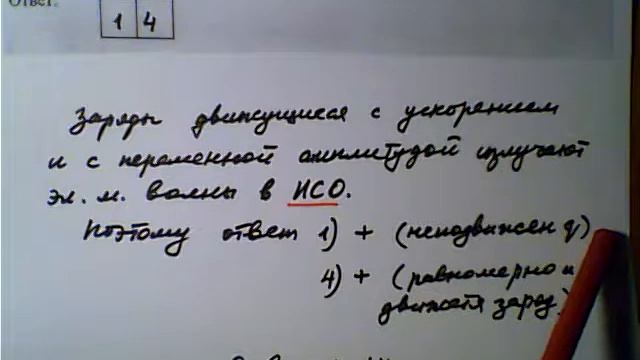 Ответ:
1 4
Заряды движущиеся с ускорением
и с переменной амплитудой излучают
эл. м. волны в ИСО.
Поэтому ответ 1) + (неподвижен q)
4) + (равномерно
движется заряд)